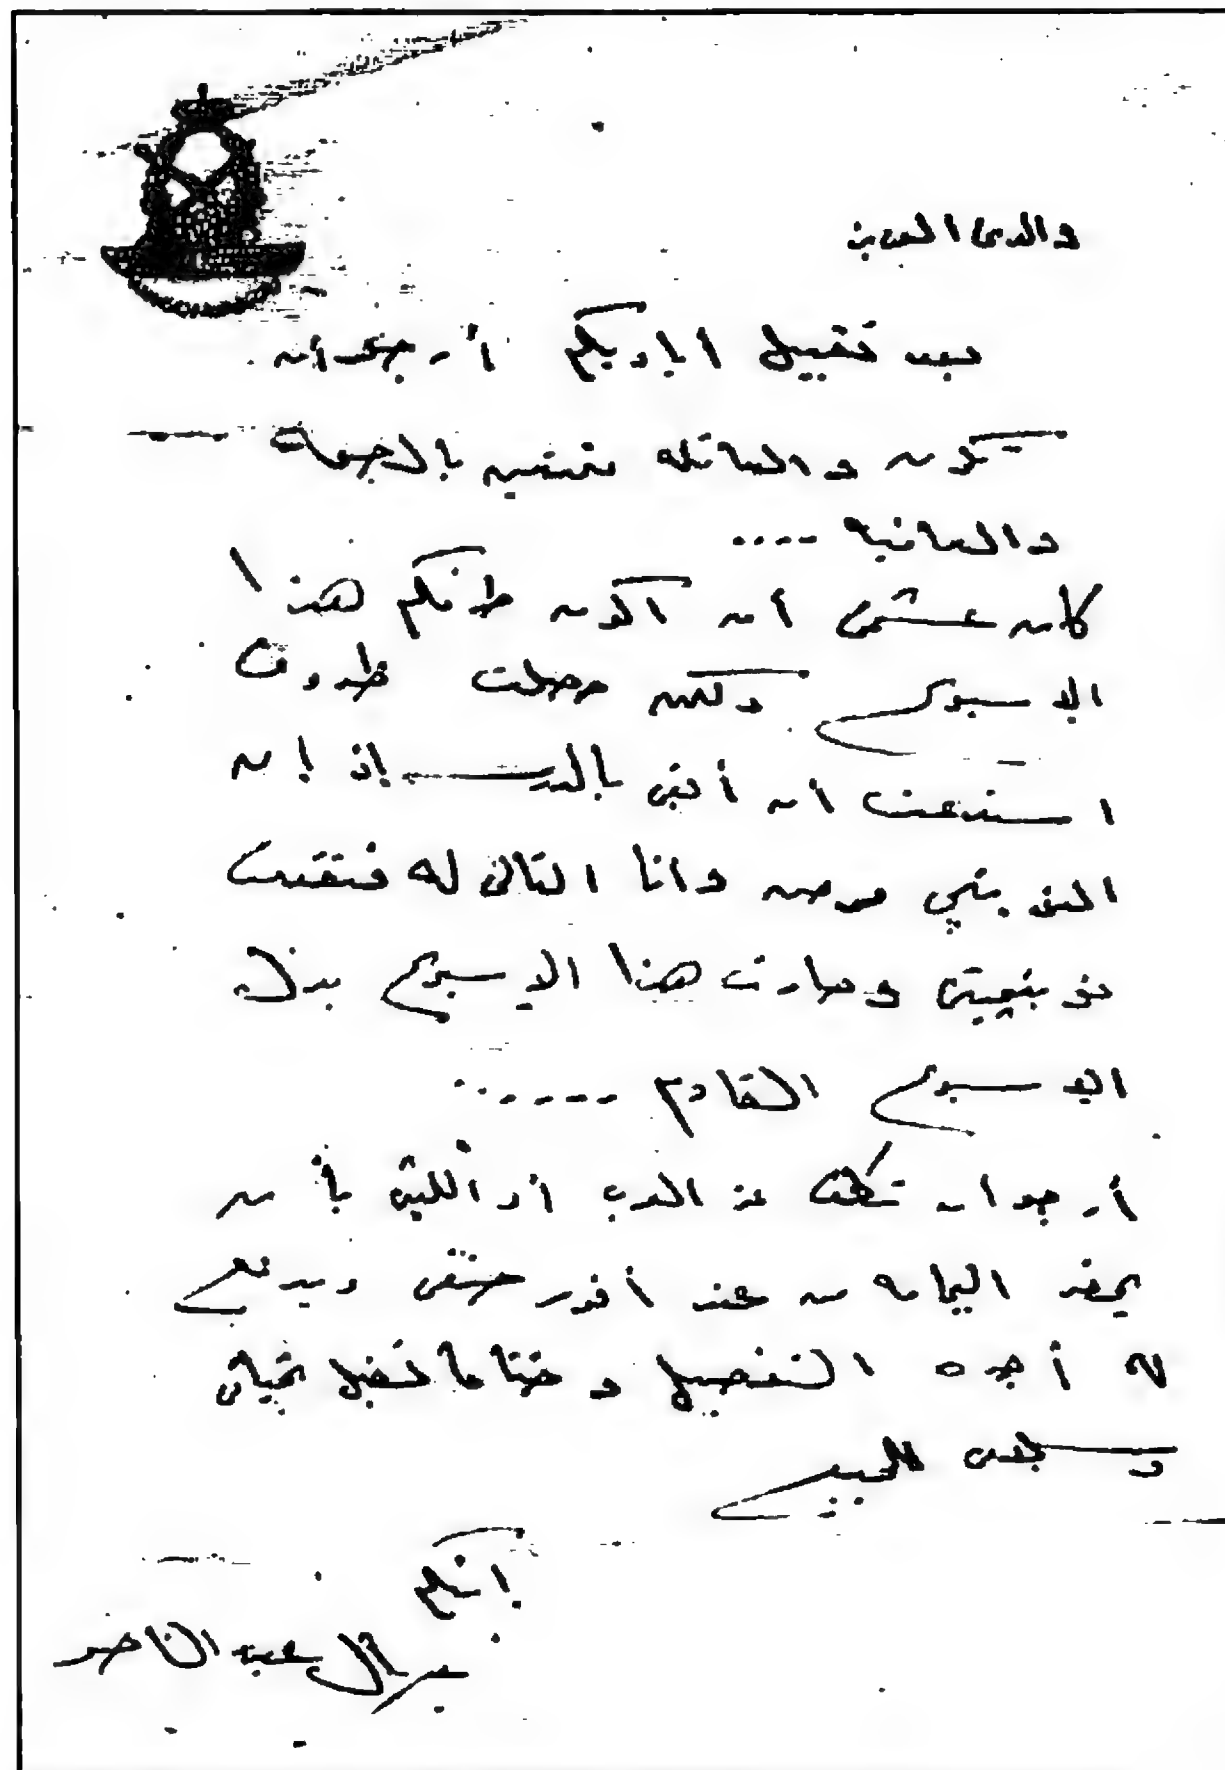 والدى العزيز
بعد تقبيل اياديكم أرجو أن
تكون والعائله متمتعين بالصحة
والعافية ....
كان عشمى أن أكون طرفكم هذا
الاسبوع ولكن حصلت ظروف
استدعت أن أبقى بالمدرسة إذ إن
النوبتجى مرض وانا التالى له فتقدمت
نوبتجيتى وصارت هذا الاسبوع بدل
الاسبوع القادم .....
أرجو ان عز العرب أو الليثى بأن
يحضر من عند أفندى ويدفع
له أجره التفصيل وختاما تفضل تحياتى
وسلامى للجميع
ابنكم
جمال عبد الناصر